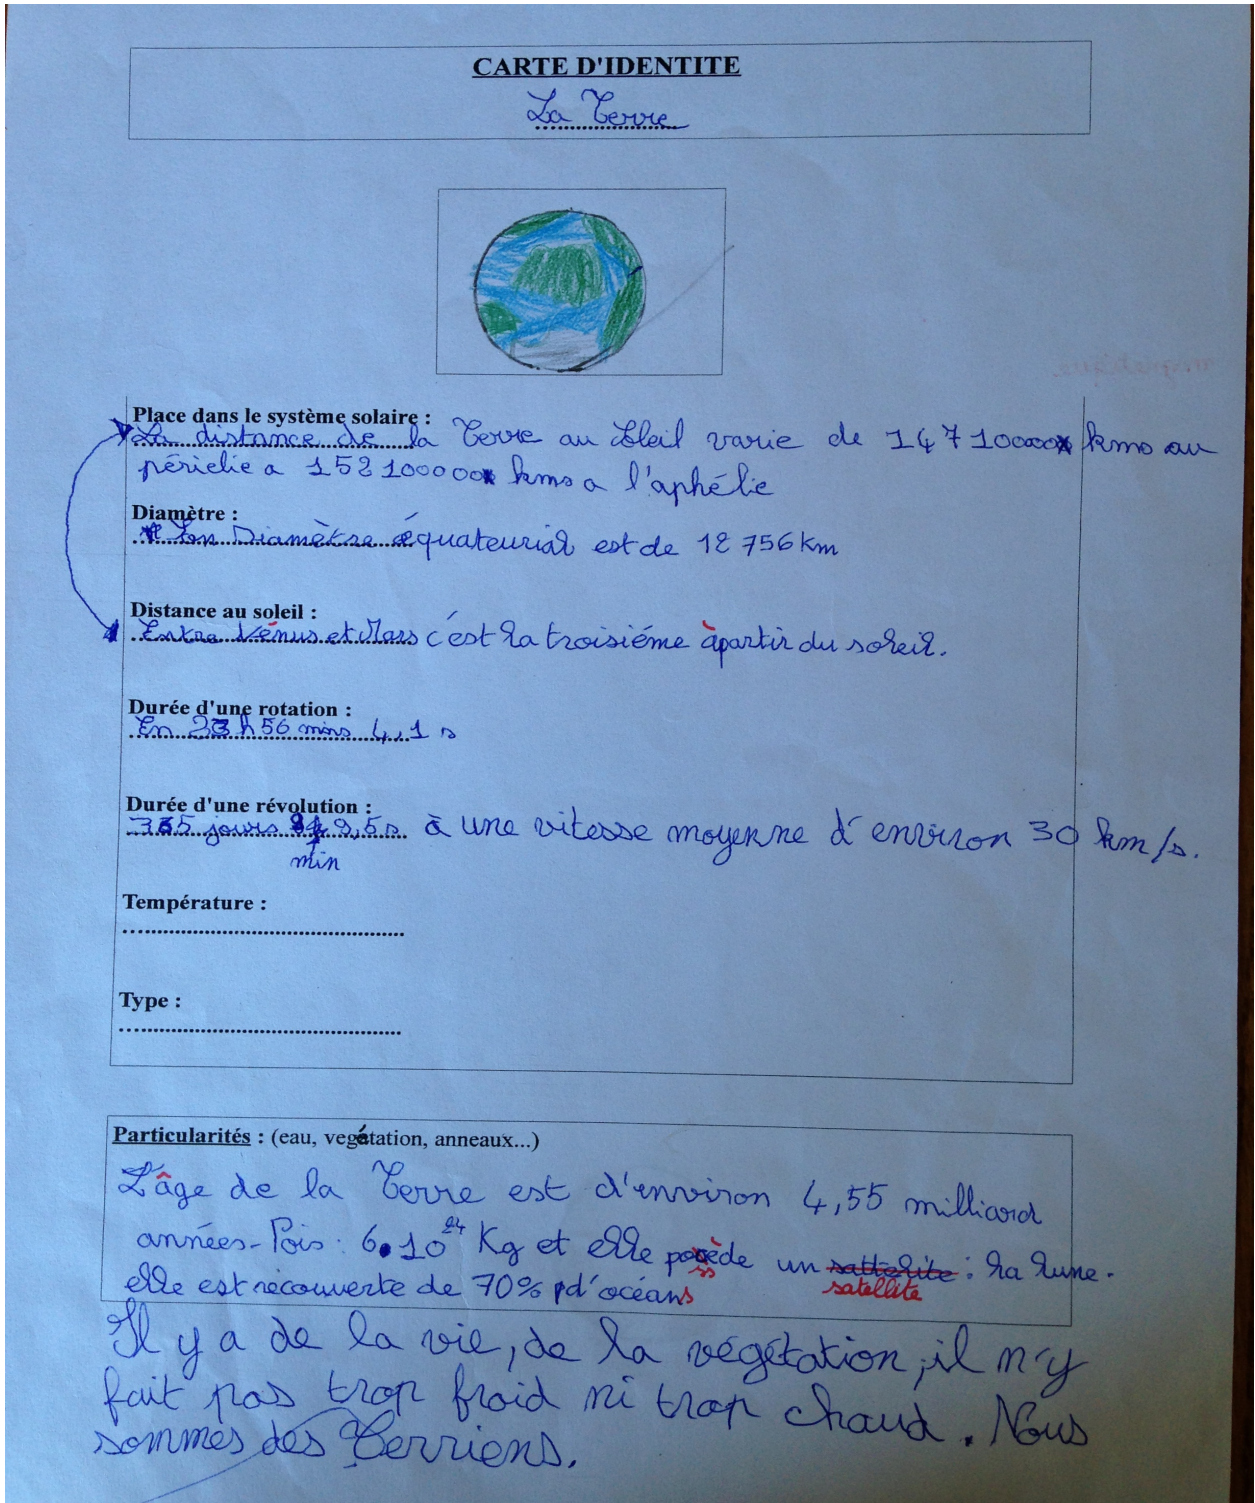 CARTE D'IDENTITE
La Terre
Place dans le système solaire :
La distance de la Terre au Soleil varie de 147 100000 kms au
périelie a 152 100000 kms a l'aphélie
Diamètre :
Son Diamètre équateurial est de 12 756 km
Distance au soleil :
Entre Vénus et Mars c'est la troisiéme à partir du soleil.
Durée d'une rotation :
En 23 h 56 mins 4,1 s
Durée d'une révolution :
365 jours 9,5s à une vitesse moyenne d'environ 30 km/s.
min
Température :
Type :
Particularités : (eau, vegétation, anneaux...)
L'âge de la Terre est d'environ 4,55 milliard
années - Pois : 6.10²⁴ Kg et elle possède un sattelite : la lune.
satellite
elle est recouverte de 70% d'océans
Il y a de la vie, de la végétation, il n'y
fait pas trop froid ni trop chaud. Nous
sommes des Terriens.